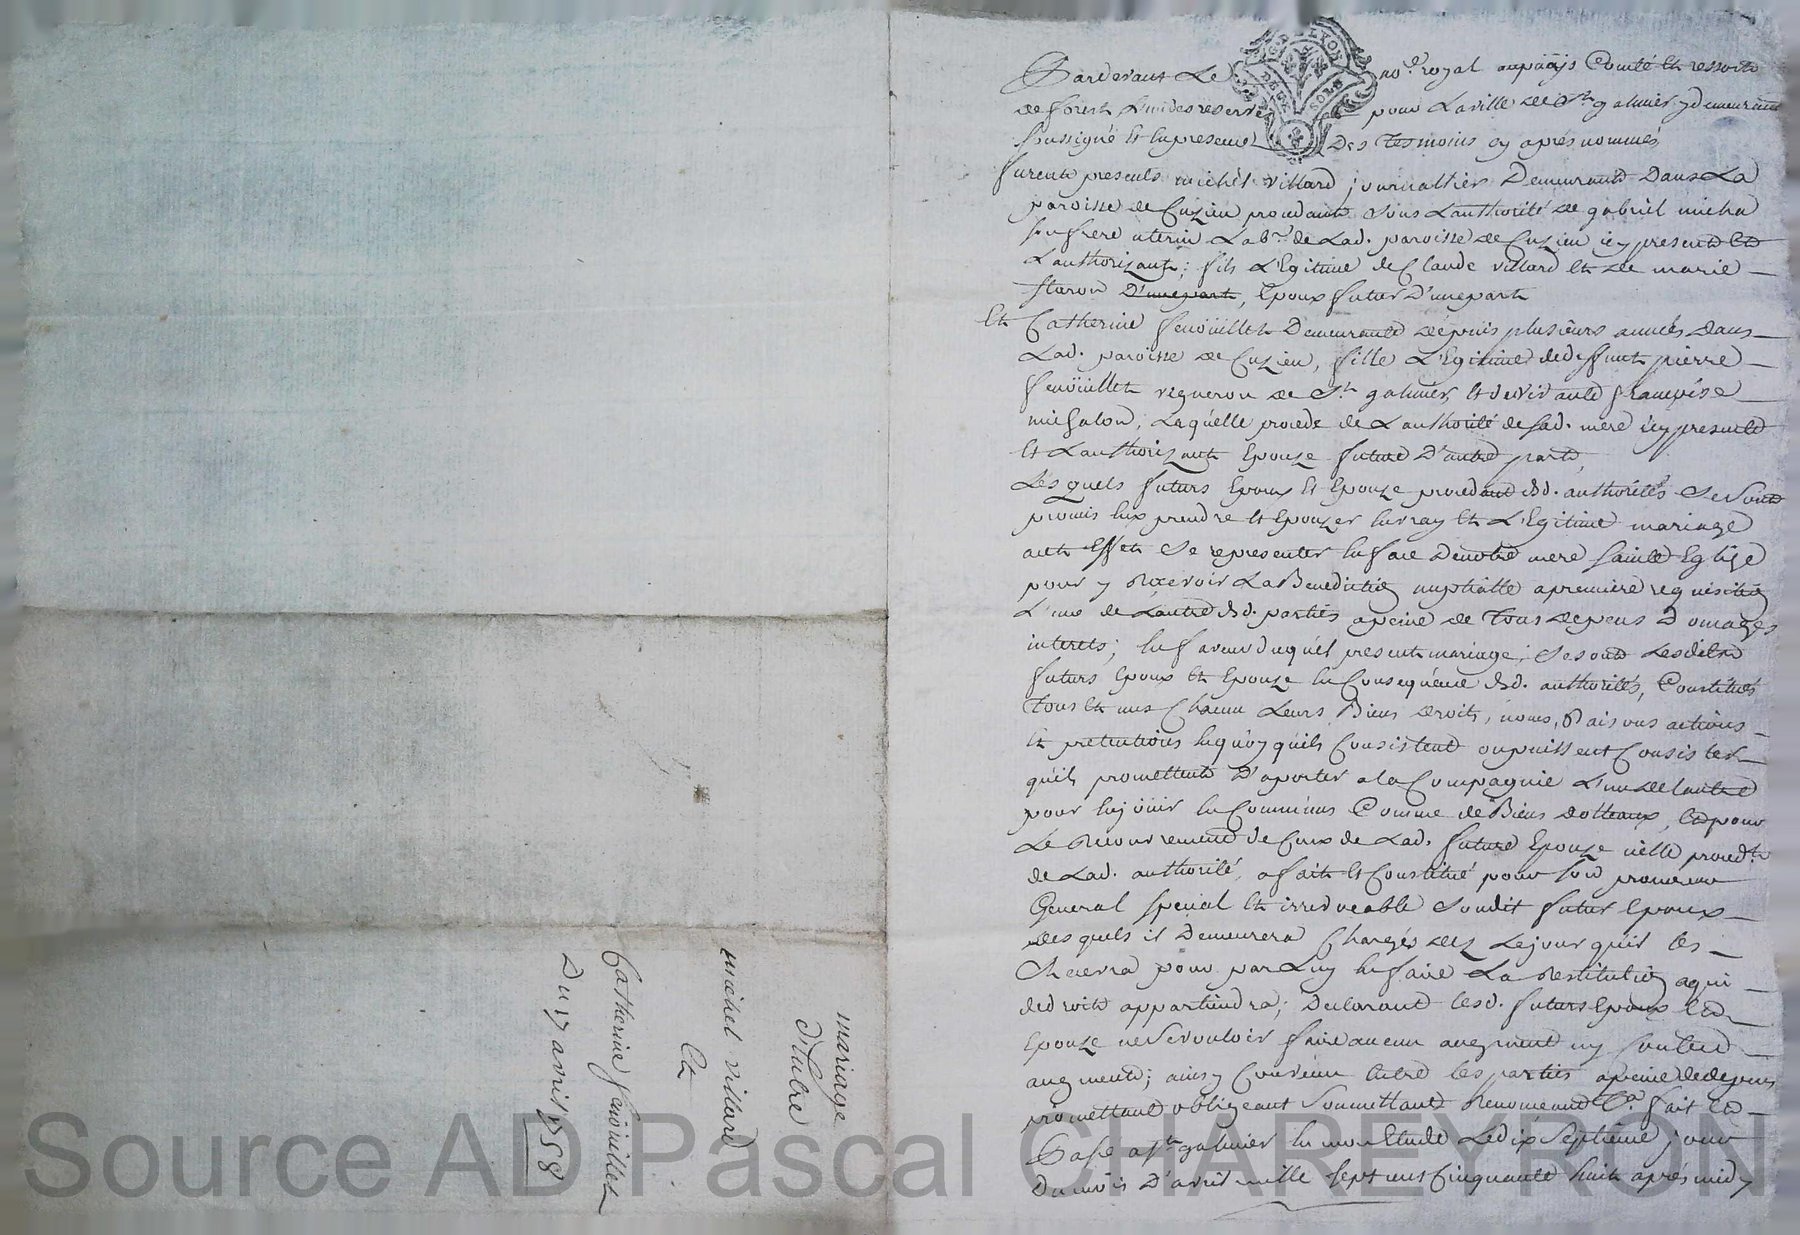 mariage
d'Entre
michel villard
Et
Catherine fenoüillet
Du 17 avril 1758
G. DE LYON
DEUX SOLS
Pardevant Le no.re royal au païs Comté Et ressorts
de forest L'un des reservés pour La ville de St galmier y demeurant
soussigné Et En presence Des Tesmoins cy aprés nommés
furent presents michel villard journallier Demeurant Dans La
paroisse de Cuzieu procedant sous L'authorité de gabriel micha
son frere uterin Lab.r de Lad. paroisse de Cuzieu icy present Et
L'authorizant; fils L'Egitime de Claude villard Et de marie
D'une part, Epoux futur D'une part
Et Catherine fenoüillet Demeurante dépuis plusieurs années dans
Lad. paroisse de Cuzieu, fille L'Egitime de deffunt pierre
fenoüillet vigneron de St galmier, Et de vivante françoise
michalon, Laquelle procede de L'authorité de sad. mere icy presente
Et L'authorizant Epouze future D'autre part,
Lesquels futurs Epoux Et Epouze procedant esd. authorités se sont
promis Eux prendre Et Epouzer En vray Et L'Egitime mariage
a cet Effet se representer En face De notre mere sainte Eglize
pour y Recevoir La Benediction nuptialle a premiere requisition
L'une de L'autre desd. parties a peine de Tous depens Domages
interets; En faveur duquel present mariage; se sont Lesdits
futurs Epoux Et Epouze En Consequence desd. authorités, Constitués
Tous Et uns Chacun Leurs Biens droits, noms, Raisons actions
Et pretentions En quoy quils Consistent ou puissent Consister
quils promettent D'aporter a la Compagnie L'un de L'autre
pour En joüir En Commun Comme de Biens dotteaux, Et pour
Le Recouvrement de Ceux de Lad. future Epouze icelle proced.te
de Lad. authorité, a fait Et Constitué pour son procureur
General special Et irrevocable Sondit futur Epoux
desquels il Demeurera Chargés dez Le jour quil les
pour par Luy En faire La Restitution a qui
de droit appartiendra; Declarant Lesd. futurs Epoux Et
Epouze ne se vouloir faire aucun augment ny contre
augment; ainsy Convenu Entre les parties a peine de depens
promettant obligeant Soumettant Renonceant C.a fait Et
Passé a St galmier En mon Etude Le dix septieme jour
Du mois D'avril mille sept cent Cinquante huit aprés midy
Source AD Pascal CHAREYRON